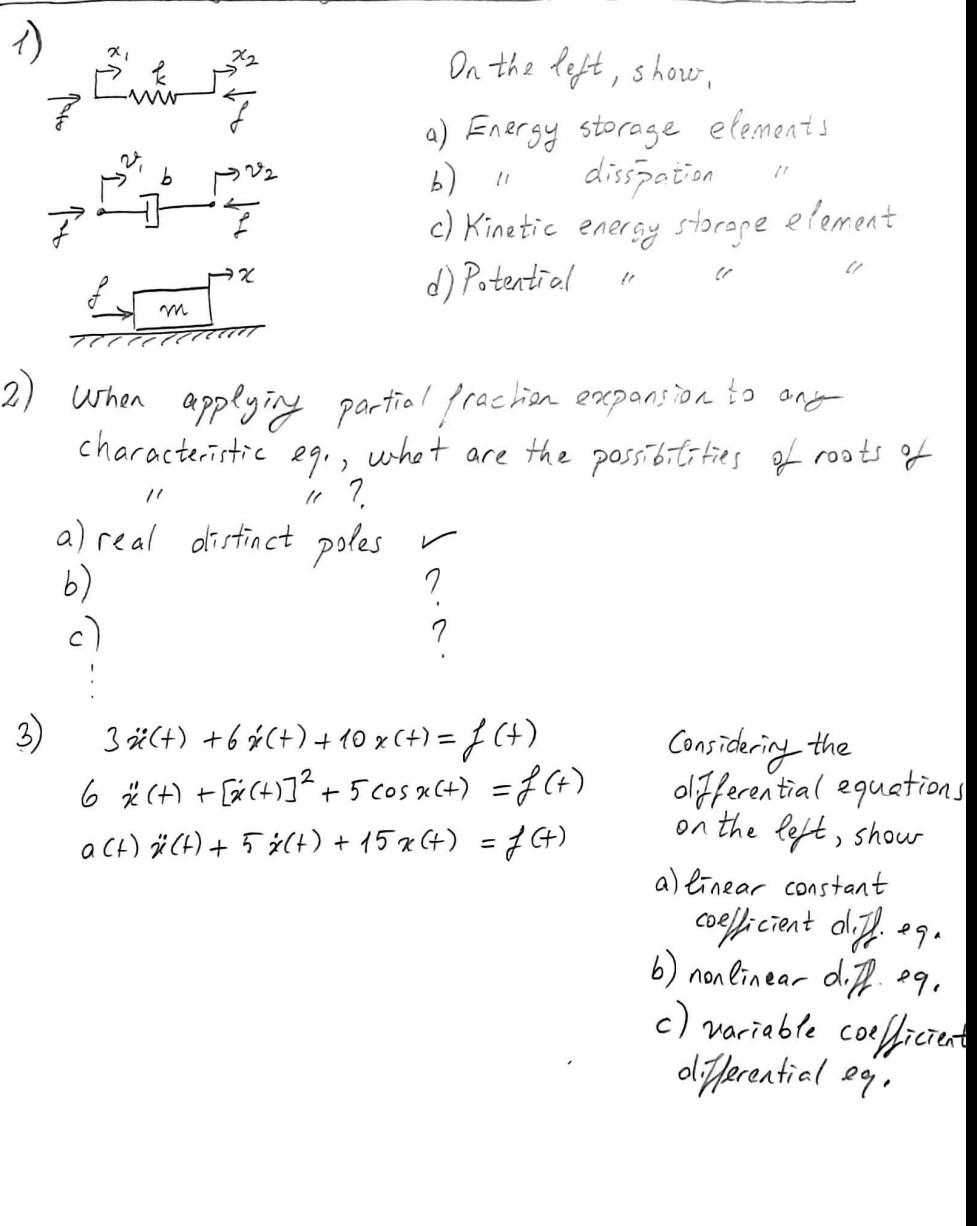 1)
x₁ k x₂
f f
On the left, show,
a) Energy storage elements
b) " disspation "
c) Kinetic energy storage element
d) Potential " " "
v₁ b v₂
f f
f m x
2) When applying partial fraction expansion to any
characteristic eq., what are the possibilities of roots of
" " ?
a) real distinct poles ✓
b) ?
c) ?
⋮
3) 3ẍ(t) + 6ẋ(t) + 10x(t) = f(t)
6 ẍ(t) + [ẋ(t)]² + 5 cos x(t) = f(t)
a(t) ẍ(t) + 5ẋ(t) + 15x(t) = f(t)
Considering the
differential equations
on the left, show
a) linear constant
coefficient diff. eq.
b) nonlinear diff. eq.
c) variable coefficient
differential eq.